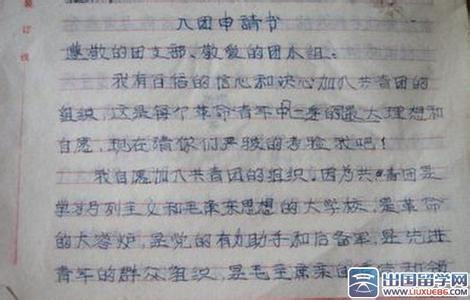 装订线
入团申請书
尊敬的团支部、敬爱的团小組：
我有百倍的信心和决心加入共青团的
组织，这是每个革命青年中的最大理想和
自愿，现在請你们严骏的考验我吧！
我自愿加入共青团的组织，因为共青团是
学习马列主义和毛泽东思想的大学校，是革命
的大容炉，是党的有力助手和后备军，是先进
青年的群众组织，是毛主席亲
出国留学网
www.liuxue86.com